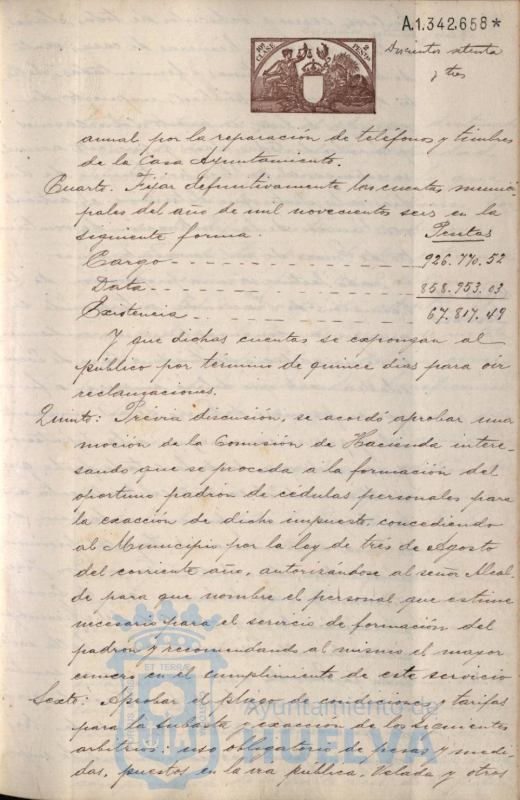 A.1.342.658*
10ª CLASE
2 PESETAS
Doscientos setenta
y tres
anual por la reparación de teléfonos y timbres
de la Casa Ayuntamiento.
Cuarto. Fijar definitivamente las cuentas munici-
pales del año de mil novecientos seis en la
siguiente forma. Pesetas
Cargo 926.770.52
Data 858.953.03
Existencia 67.817.49
Y que dichas cuentas se expongan al
público por término de quince días para oír
reclamaciones.
Quinto: Previa discusión, se acordó aprobar una
moción de la Comisión de Hacienda intere-
sando que se proceda a la formación del
oportuno padrón de cédulas personales para
la exacción de dicho impuesto, concediendo
al Municipio por la ley de tres de Agosto
del corriente año, autorizándose al señor Alcal-
de para que nombre el personal que estime
necesario para el servicio de formación del
padrón y recomendando al mismo el mayor
esmero en el cumplimiento de este servicio
Sexto: Aprobar el pliego de condiciones y tarifas
para la subasta y exacción de los siguientes
arbitrios: uso obligatorio de pesas y medi-
das, puestos en la vía pública, Velada y otros
ET TERRÆ
Ayuntamiento de
HUELVA